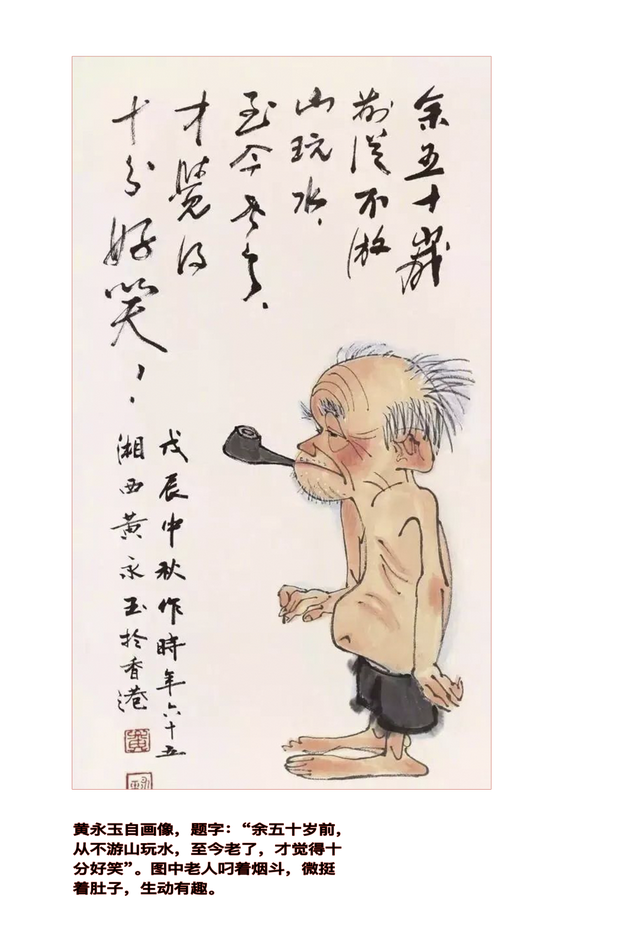 余五十歲
前從不游
山玩水，
至今老了、
才覺得
十分好笑！
戊辰中秋作時年六十五
湘西黄永玉於香港
黄
黄永玉自画像，题字：“余五十岁前，
从不游山玩水，至今老了，才觉得十
分好笑”。图中老人叼着烟斗，微挺
着肚子，生动有趣。